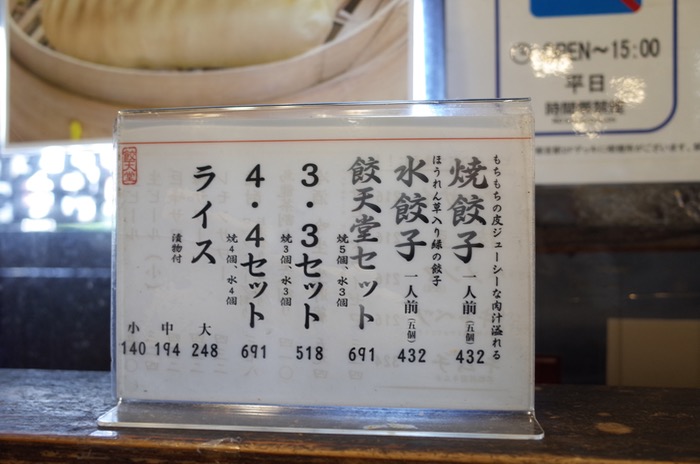 もちもちの皮ジューシーな肉汁溢れる
焼餃子 一人前(五個) 432
ほうれん草入り緑の餃子
水餃子 一人前(五個) 432
餃天堂セット 691
焼5個、水3個
3・3セット 518
焼3個、水3個
4・4セット 691
焼4個、水4個
ライス
漬物付
大 248
中 194
小 140
餃天堂
OPEN～15:00
平日
時間帯禁煙